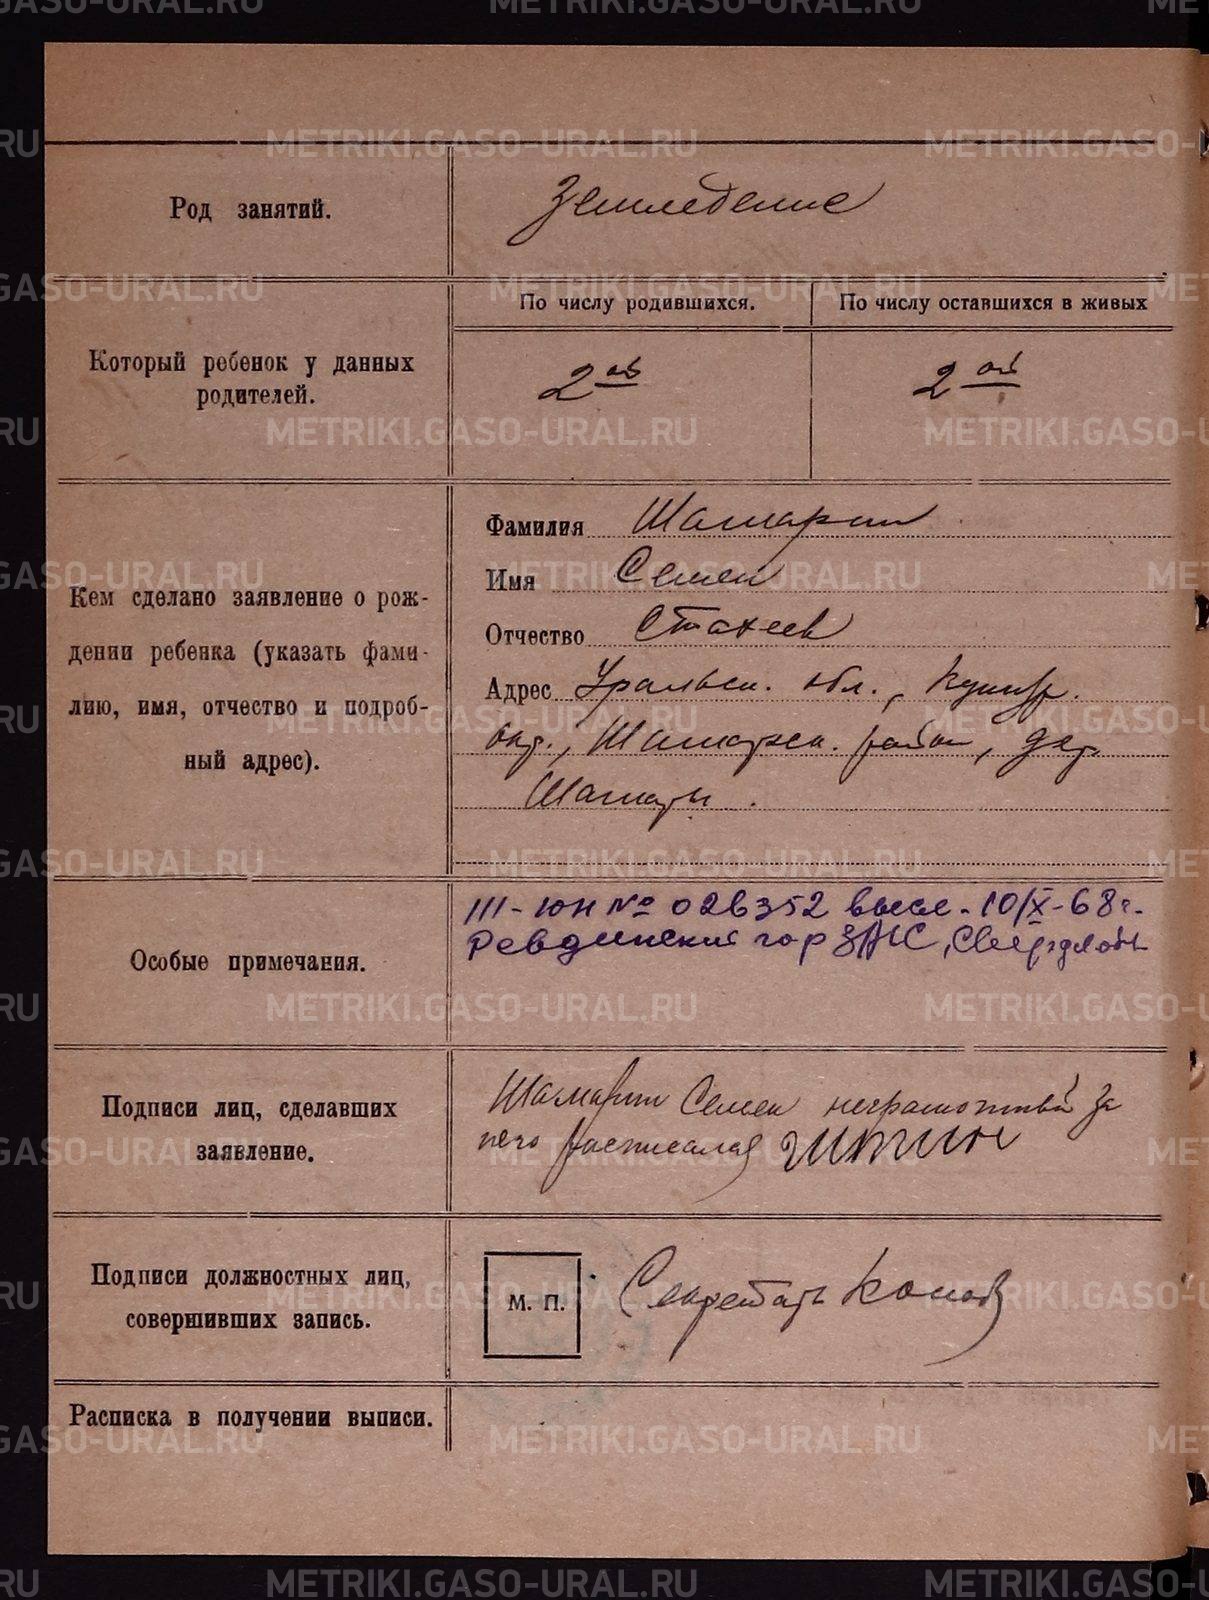 Род занятий.
Земледелие
Который ребенок у данных
родителей.
По числу родившихся.
По числу оставшихся в живых
2 ой
2 ой
Кем сделано заявление о рож-
дении ребенка (указать фами-
лию, имя, отчество и подроб-
ный адрес).
Фамилия Шамарин
Имя Семен
Отчество Стахеев
Адрес Уральск. обл., Кунгур.
окр., Шамарск. район, дер.
Шамары.
Особые примечания.
III-ЮН № 026352 высл. 10/X-68 г.
Ревдинский гор ЗАГС, Свердлов
Подписи лиц, сделавших
заявление.
Шамарин Семен неграмотный за
него расписался
Подписи должностных лиц,
совершивших запись.
М. П.
Секретарь
Расписка в получении выписи.
METRIKI.GASO-URAL.RU